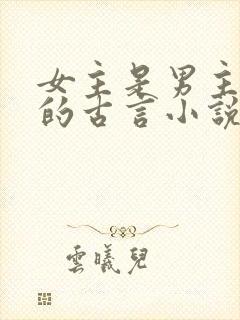 女主是男主
的古言小說
雲曦兒